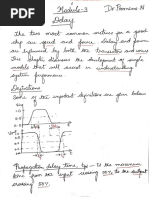 Module-3
Dr Poornima N
Delay
The two most common metrics for a good
chip are speed and power. Delay and power
are influenced by both the transistor and wires
This chapter discusses the development of simple
models that will assist in understanding
system performance
Definitions
Some of the important definitions are given below
Propagation delay time, tpd = Is the maximum
time from the input crossing 50% to the output
crossing 50%.